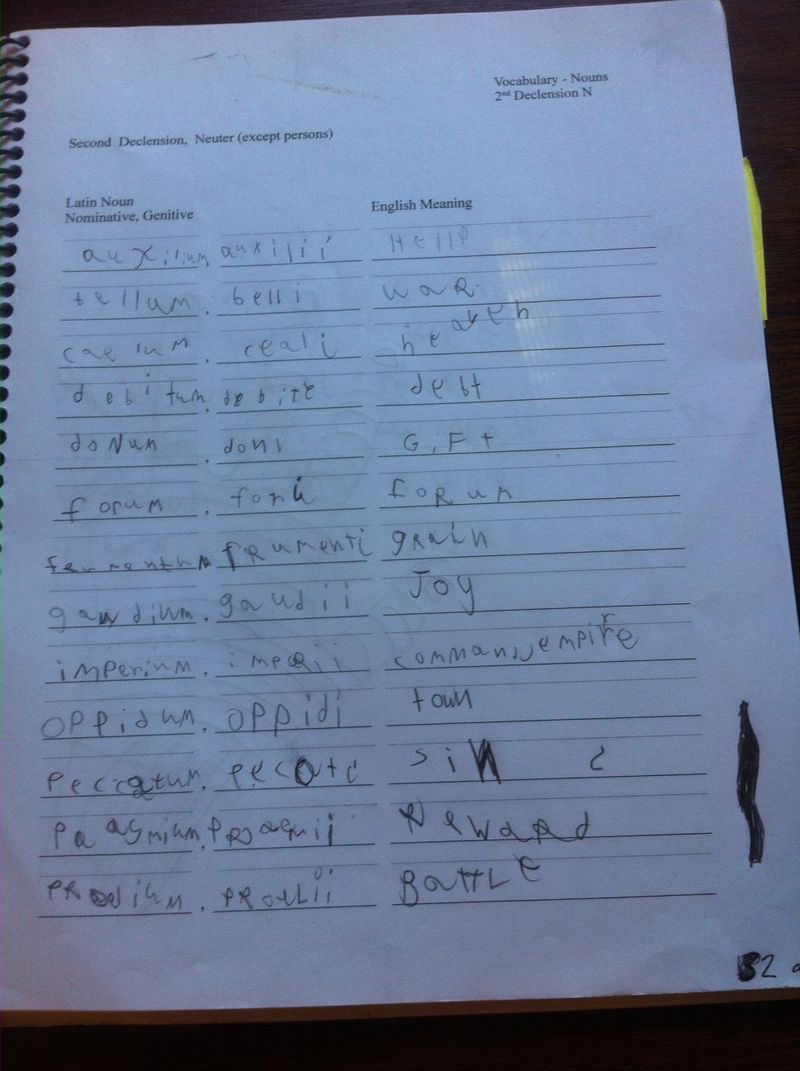 Vocabulary - Nouns
2nd Declension N
Second Declension, Neuter (except persons)
Latin Noun
Nominative, Genitive English Meaning
auxilium, auxilii Hellp
tellum, belli war
caelum, ceali heaven
debitum, debite debt
donum, doni Gift
forum, fori forum
frumenti grain
gaudium, gaudii Joy
imperium, imperii command, empire
oppidum, oppidi town
peccatum, pecati sin
praemii Reward
Battle
32